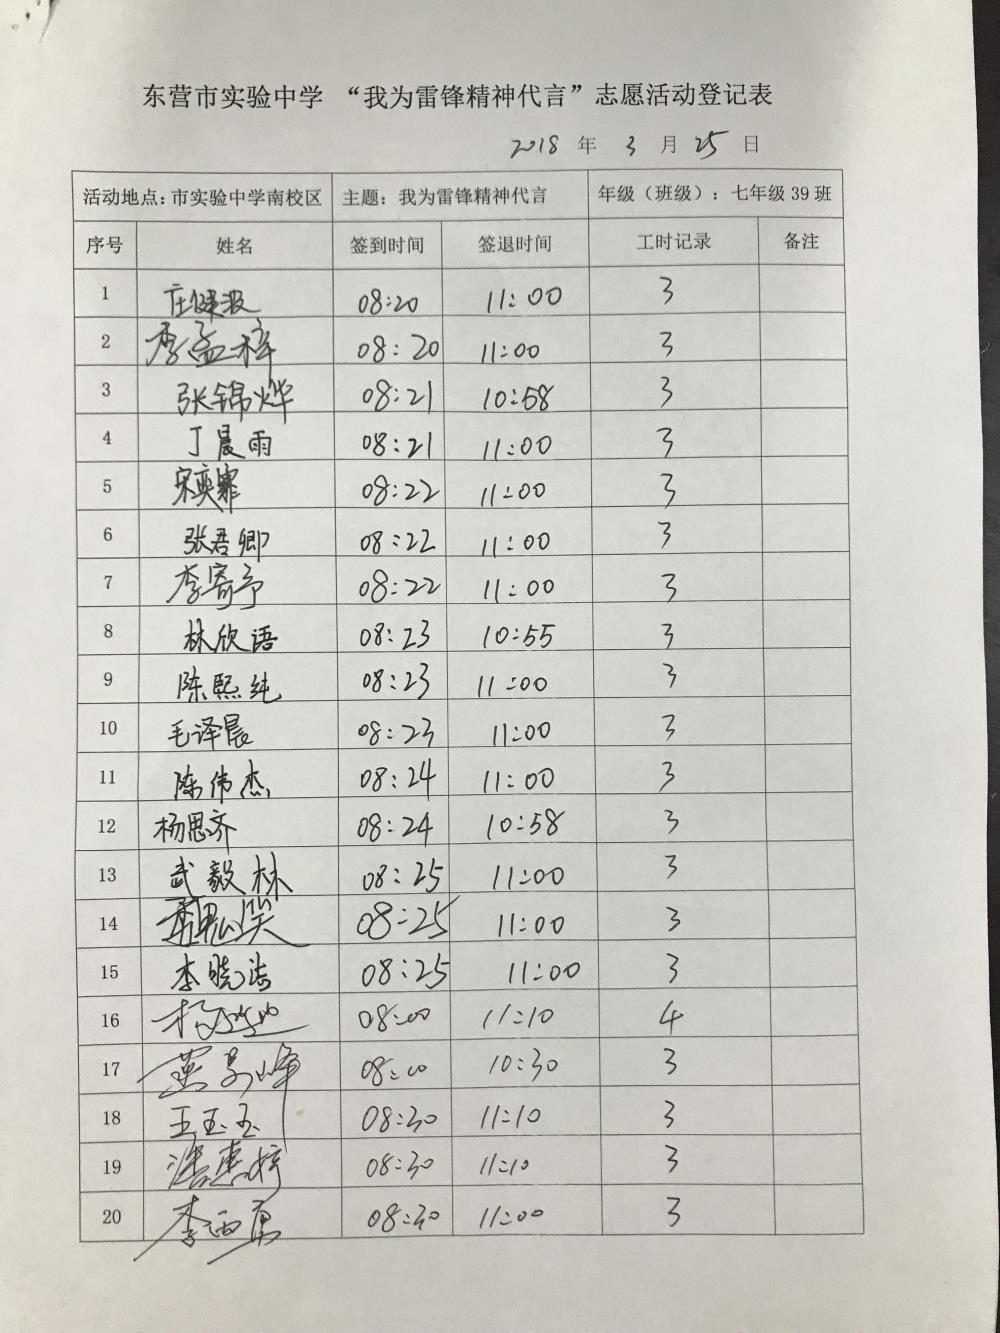 东营市实验中学 “我为雷锋精神代言”志愿活动登记表
2018 年 3 月 25 日
活动地点:市实验中学南校区 主题:我为雷锋精神代言 年级(班级):七年级 39 班
序号 姓名 签到时间 签退时间 工时记录 备注
1 庄健波 08:20 11:00 3
2 李孟梓 08:20 11:00 3
3 张锦烨 08:21 10:58 3
4 丁晨雨 08:21 11:00 3
5 宋奕霏 08:22 11:00 3
6 张君卿 08:22 11:00 3
7 李寄予 08:22 11:00 3
8 林欣语 08:23 10:55 3
9 陈熙纯 08:23 11:00 3
10 毛泽晨 08:23 11:00 3
11 陈伟杰 08:24 11:00 3
12 杨思齐 08:24 10:58 3
13 武毅林 08:25 11:00 3
14 08:25 11:00 3
15 李晓洁 08:25 11:00 3
16 杨 08:00 11:10 4
17 燕景峰 08:00 10:30 3
18 王玉玉 08:30 11:10 3
19 08:30 11:10 3
20 李 08:30 11:00 3